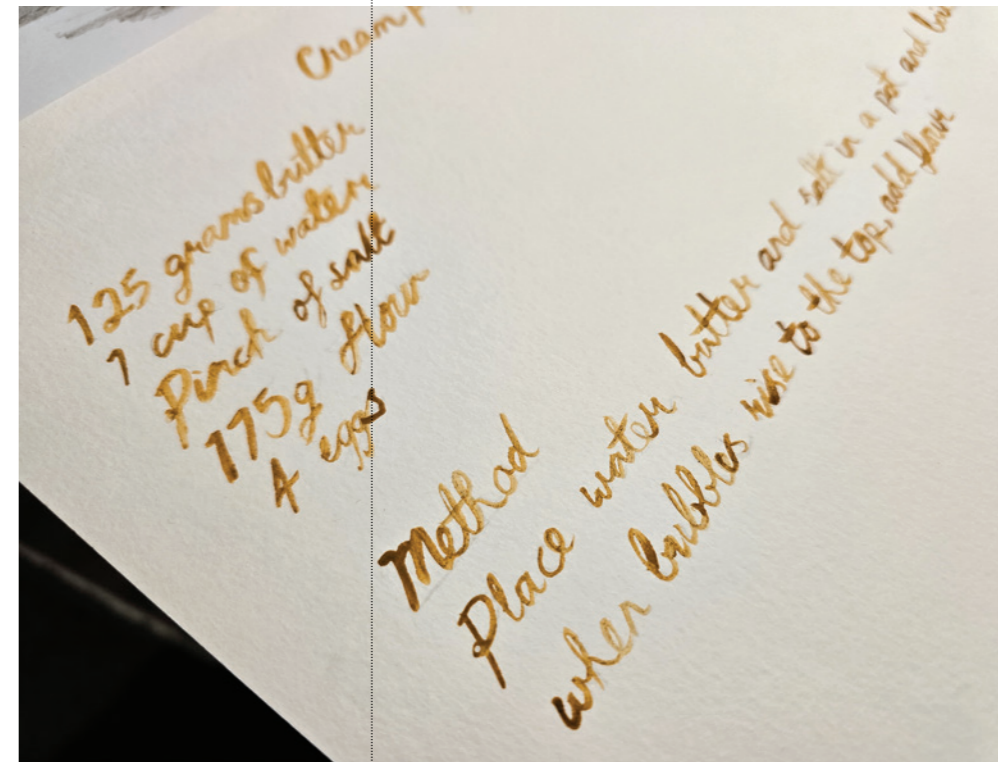 Cream
125 grams butter
1 cup of water
Pinch of salt
175g flour
4 eggs
Method
Place water butter and salt in a pot and
when bubbles rise to the top, add flour